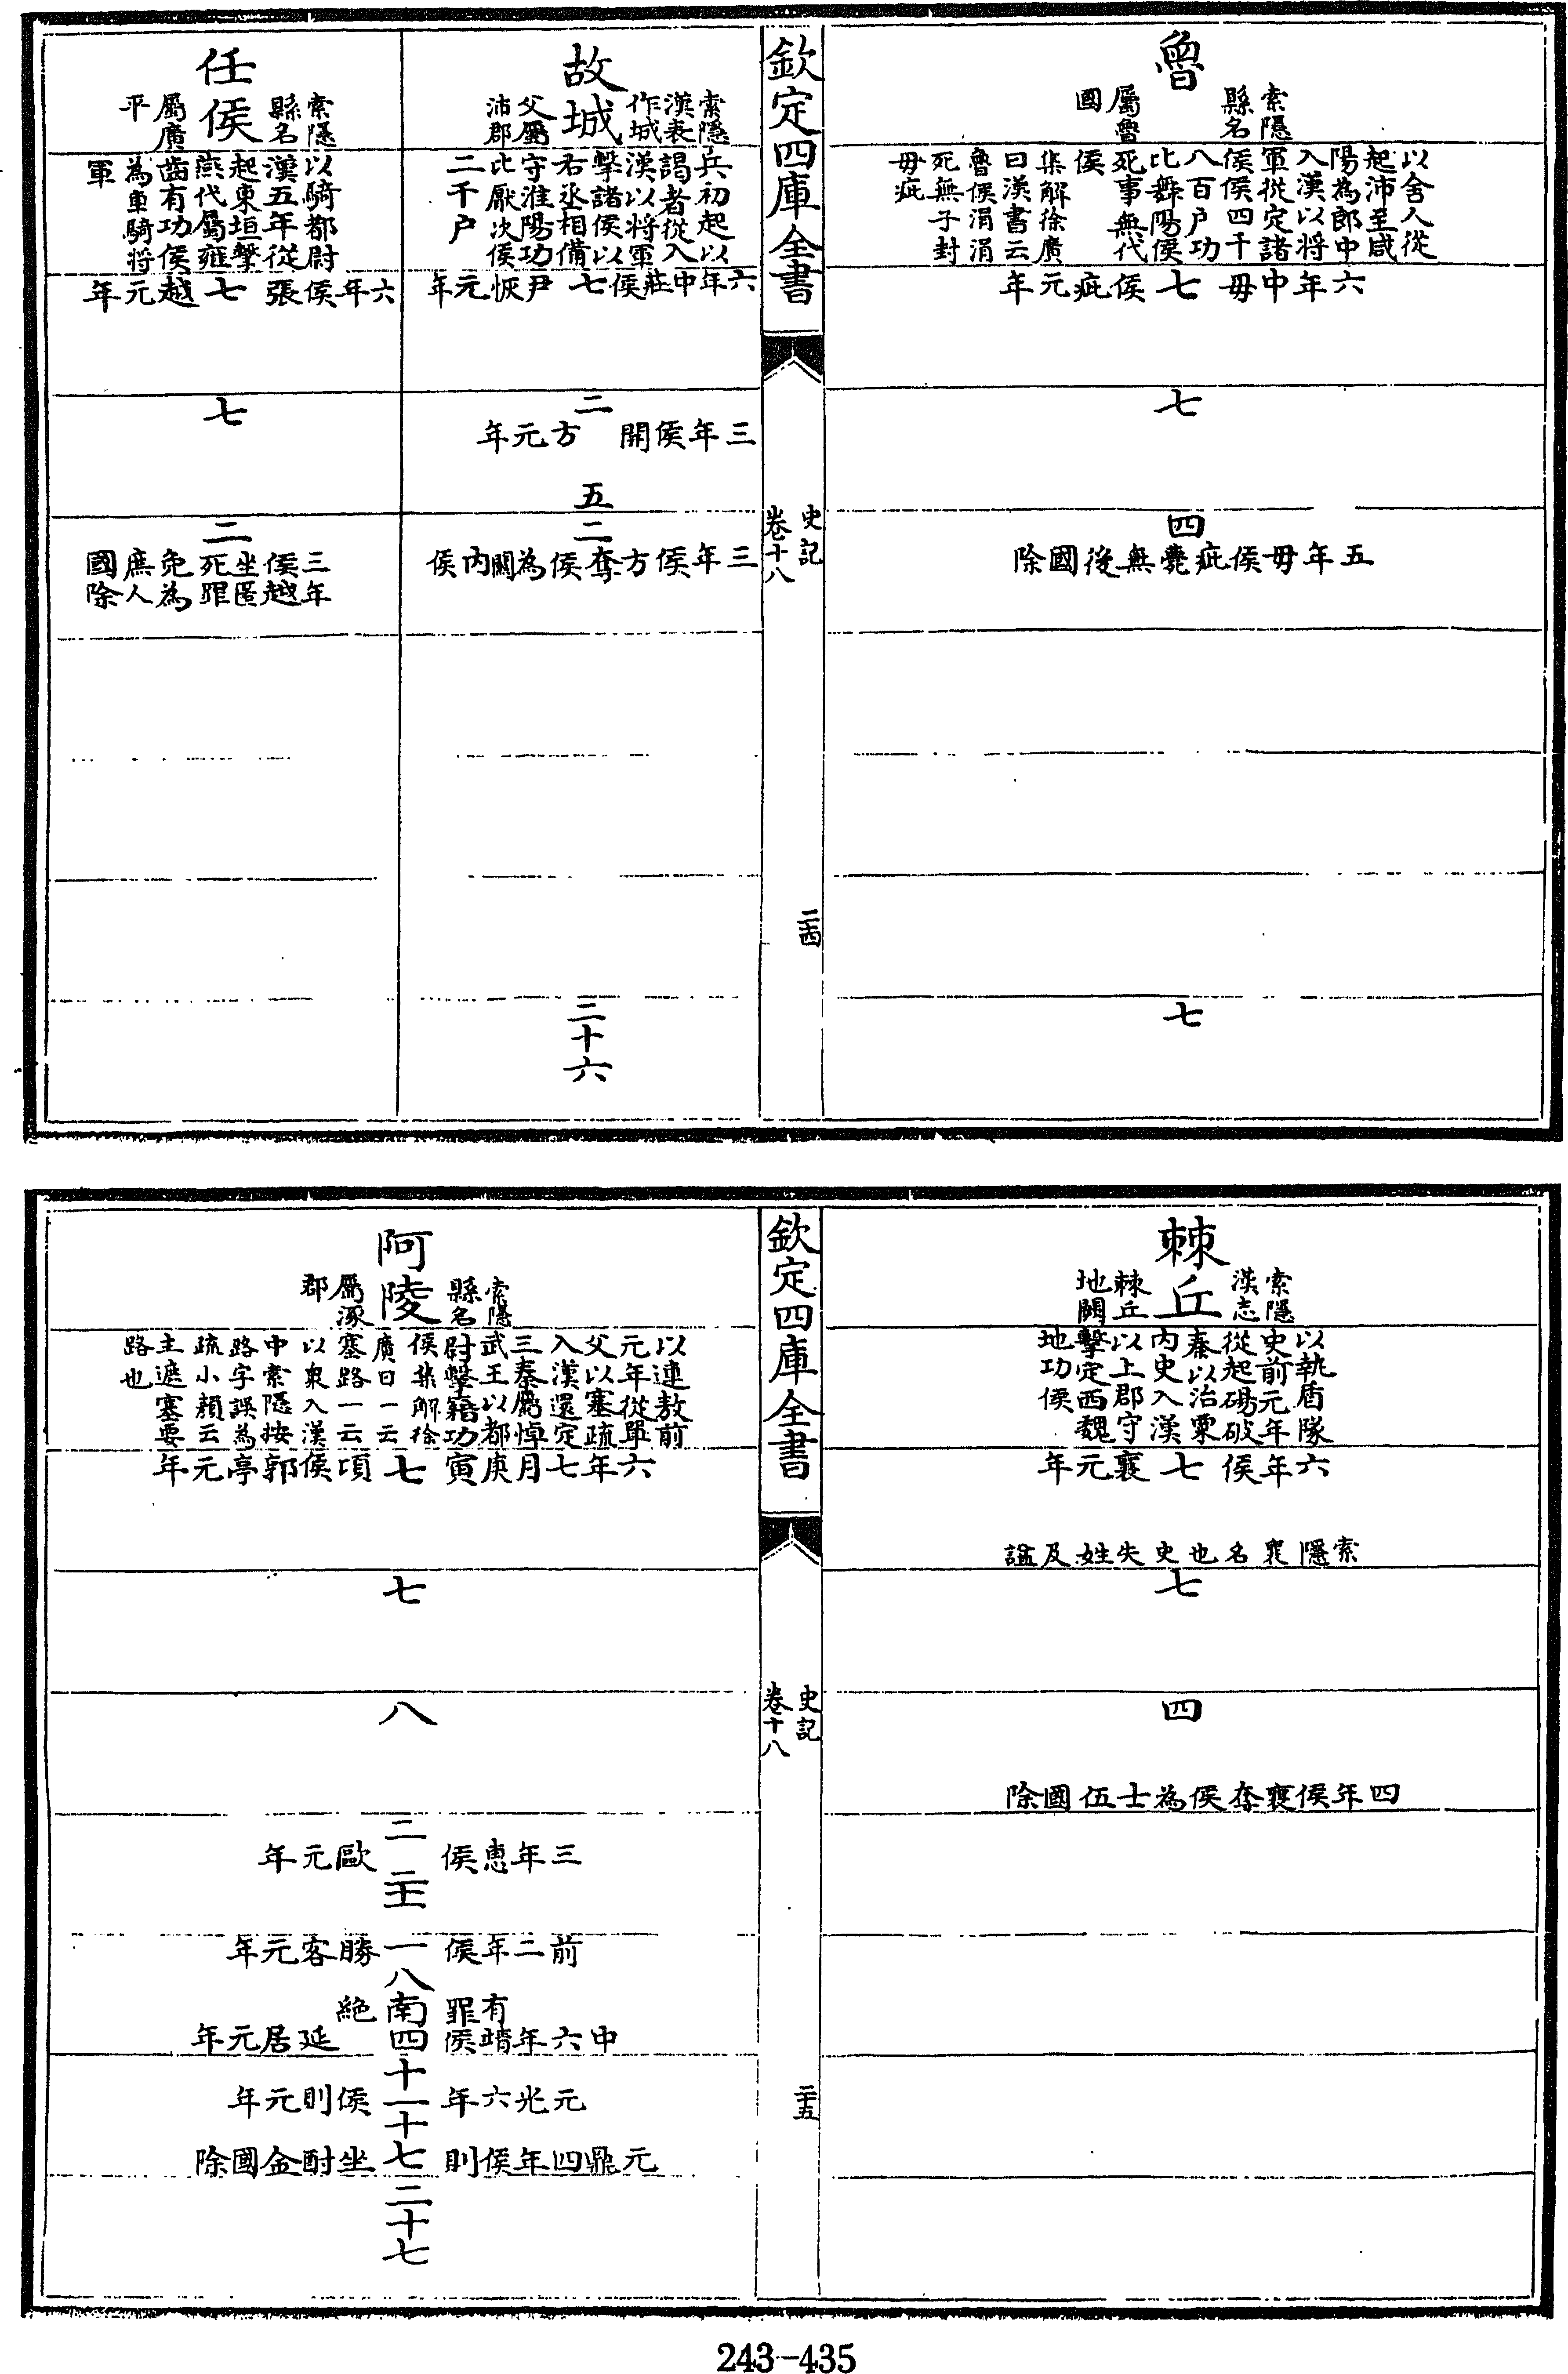 魯
索隱
縣名
屬魯
國
以舍人從
起沛至咸
陽為郎中
入漢以將
軍從定諸
侯侯四千
八百户功
比舞陽侯
死事無代
侯
集解徐廣
曰漢書云
魯侯涓涓
死無子封
毋疵
六年中毋七侯疵元年
七
四
五年毋侯疵薨無後國除
七
欽定四庫全書
史記
卷十八
二十四
故城
索隱
漢表
作城
父屬
沛郡
兵初起以
謁者從入
漢以將軍
擊諸侯以
右丞相備
守淮陽功
比厭次侯
二千户
六年中莊侯七尹恢元年
二
三年侯開方元年
五
二
三年侯方奪侯為關內侯
二十六
任侯
索隱
縣名
屬廣
平
以騎都尉
漢五年從
起東垣擊
燕代屬雍
齒有功侯
為車騎將
軍
六年侯張七越元年
七
二
三年
侯越
坐匿
死罪
免為
庶人
國除
棘丘
索隱
漢志
棘丘
地闕
以執盾隊
史前元年
從起碭破
秦以治粟
內史入漢
以上郡守
擊定西魏
地功侯
六年侯七襄元年
索隱襄名也史失姓及諡
七
四
四年侯襄奪侯為士伍國除
欽定四庫全書
史記
卷十八
二十五
阿陵
索隱
縣名
屬涿
郡
以連敖前
元年從單
父以塞疏
入漢還定
三秦屬悼
武王以都
尉擊籍功
侯集解徐
廣曰一云
塞路一云
以衆入漢
中索隱按
路字誤為
疏小顔云
主遮塞要
路也
六年七月庚寅七項侯郭亭元年
七
八
二
三年惠侯歐元年
二十一
前二年侯一勝客元年
八
有罪南絶
中六年靖侯四延居元年
十一
元光六年侯則元年
十七
元鼎四年侯則坐酎金國除
二十七
243-435